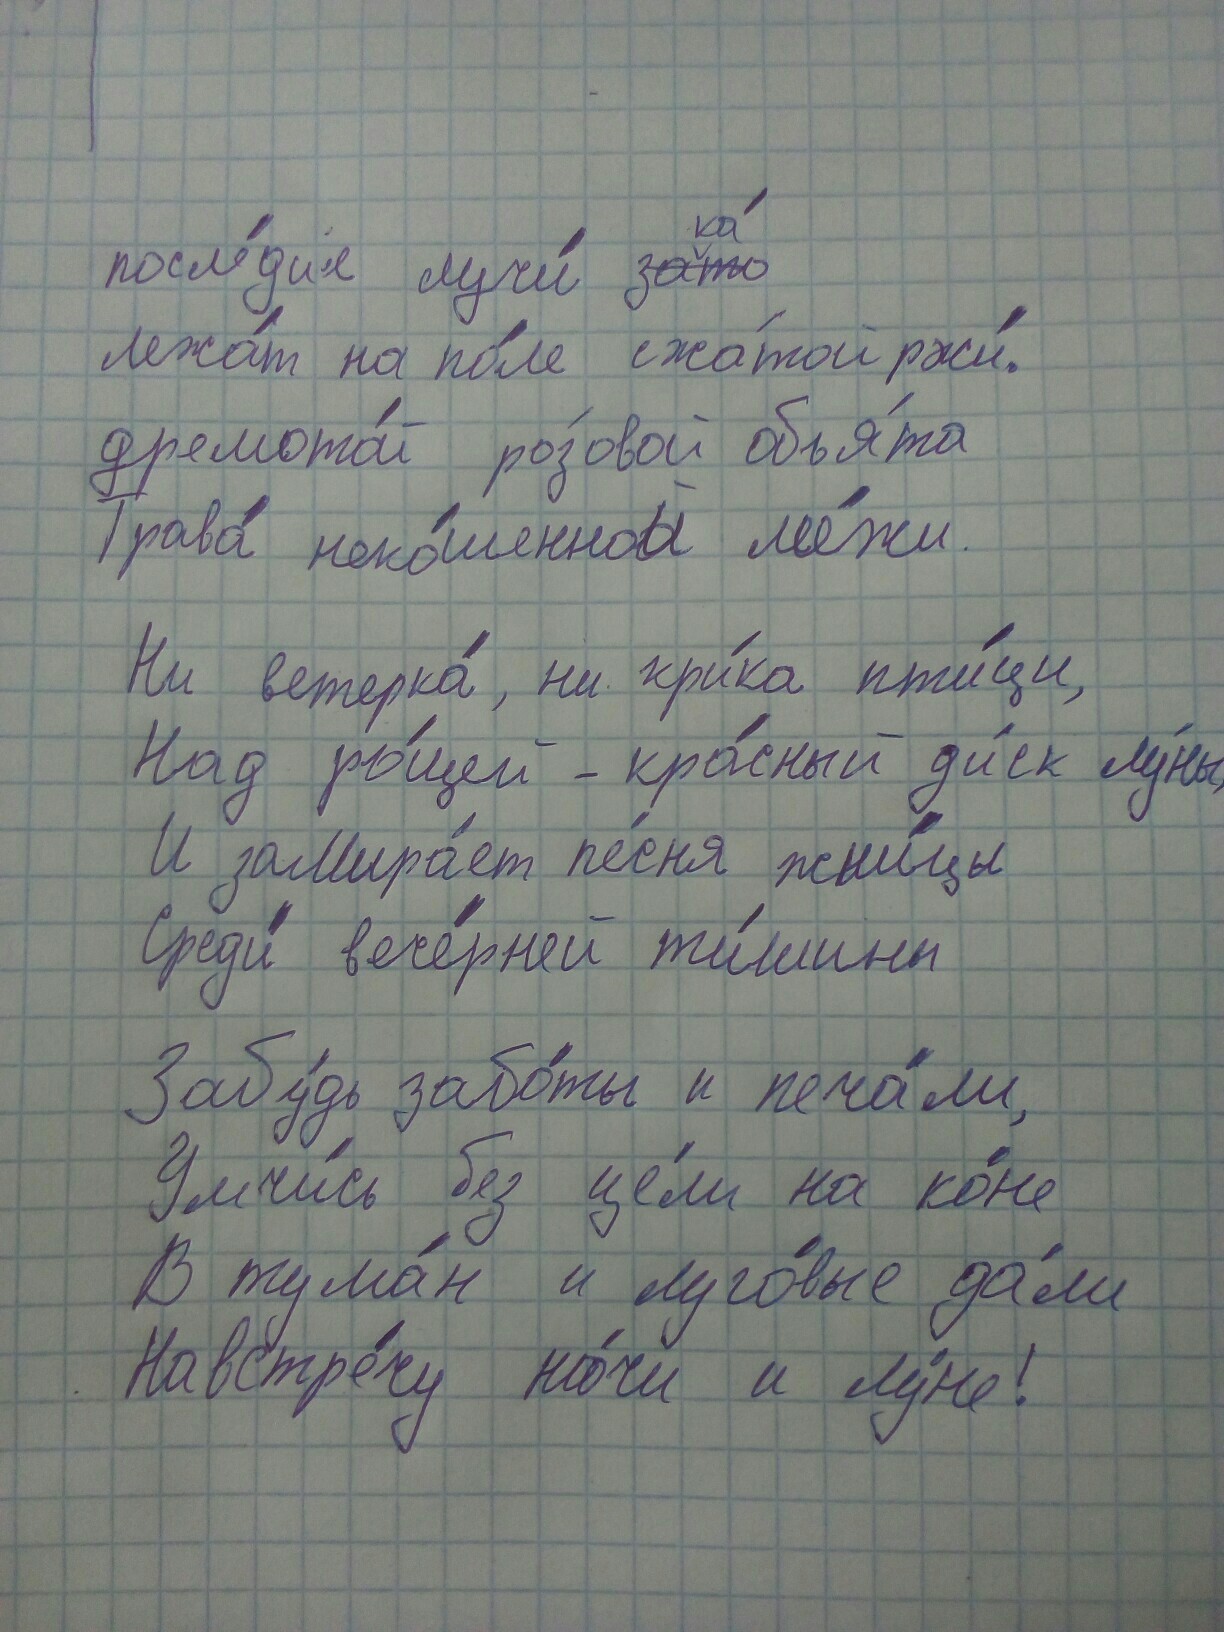 после́дия лучи́ за ка́
лежа́т на по́ле сжа́той ржи́.
дремота́й ро́зовой объя́та
Трава́ неко́шенной ме́жи.
Ни ветерка́, ни кри́ка пти́ци,
Над ро́щей - кра́сный ди́ск лу́ны,
И замира́ет пе́сня жни́цы
Среди́ вече́рней ти́шины
Забу́дь забо́ты и печа́ли,
Умчи́сь без це́ли на ко́не
В тума́н и луго́вые да́ли
Навстре́чу но́чи и лу́не!